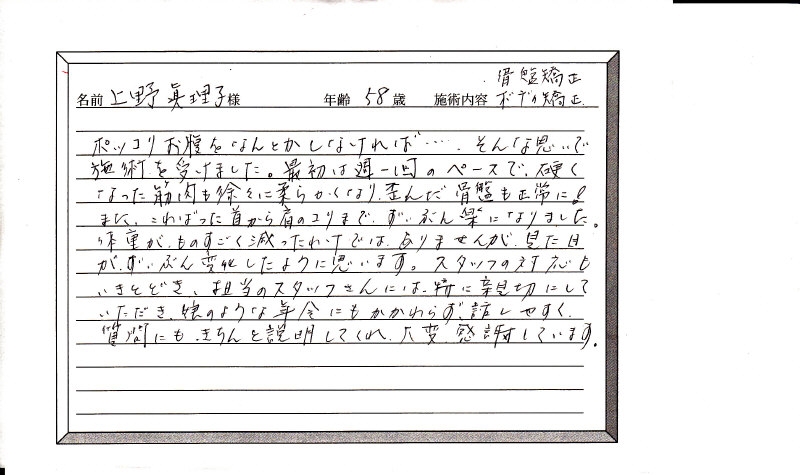 骨盤矯正
名前 上野 眞理子様 年齢 58歳 施術内容 ボディ矯正
ポッコリお腹をなんとかしなければ…… そんな思いで
施術を受けました。最初は週一回のペースで、硬く
なった筋肉も徐々に柔らかくなり、歪んだ骨盤も正常に!
また、こわばった首から肩のコリまで、ずいぶん楽になりました。
体重が、ものすごく減ったわけでは、ありませんが、見た目
が、ずいぶん変化したように思います。スタッフの対応も
いきとどき、担当のスタッフさんには、特に親切にして
いただき、娘のような年令にもかかわらず、話しやすく、
質問にも、きちんと説明してくれ、大変、感謝しています。